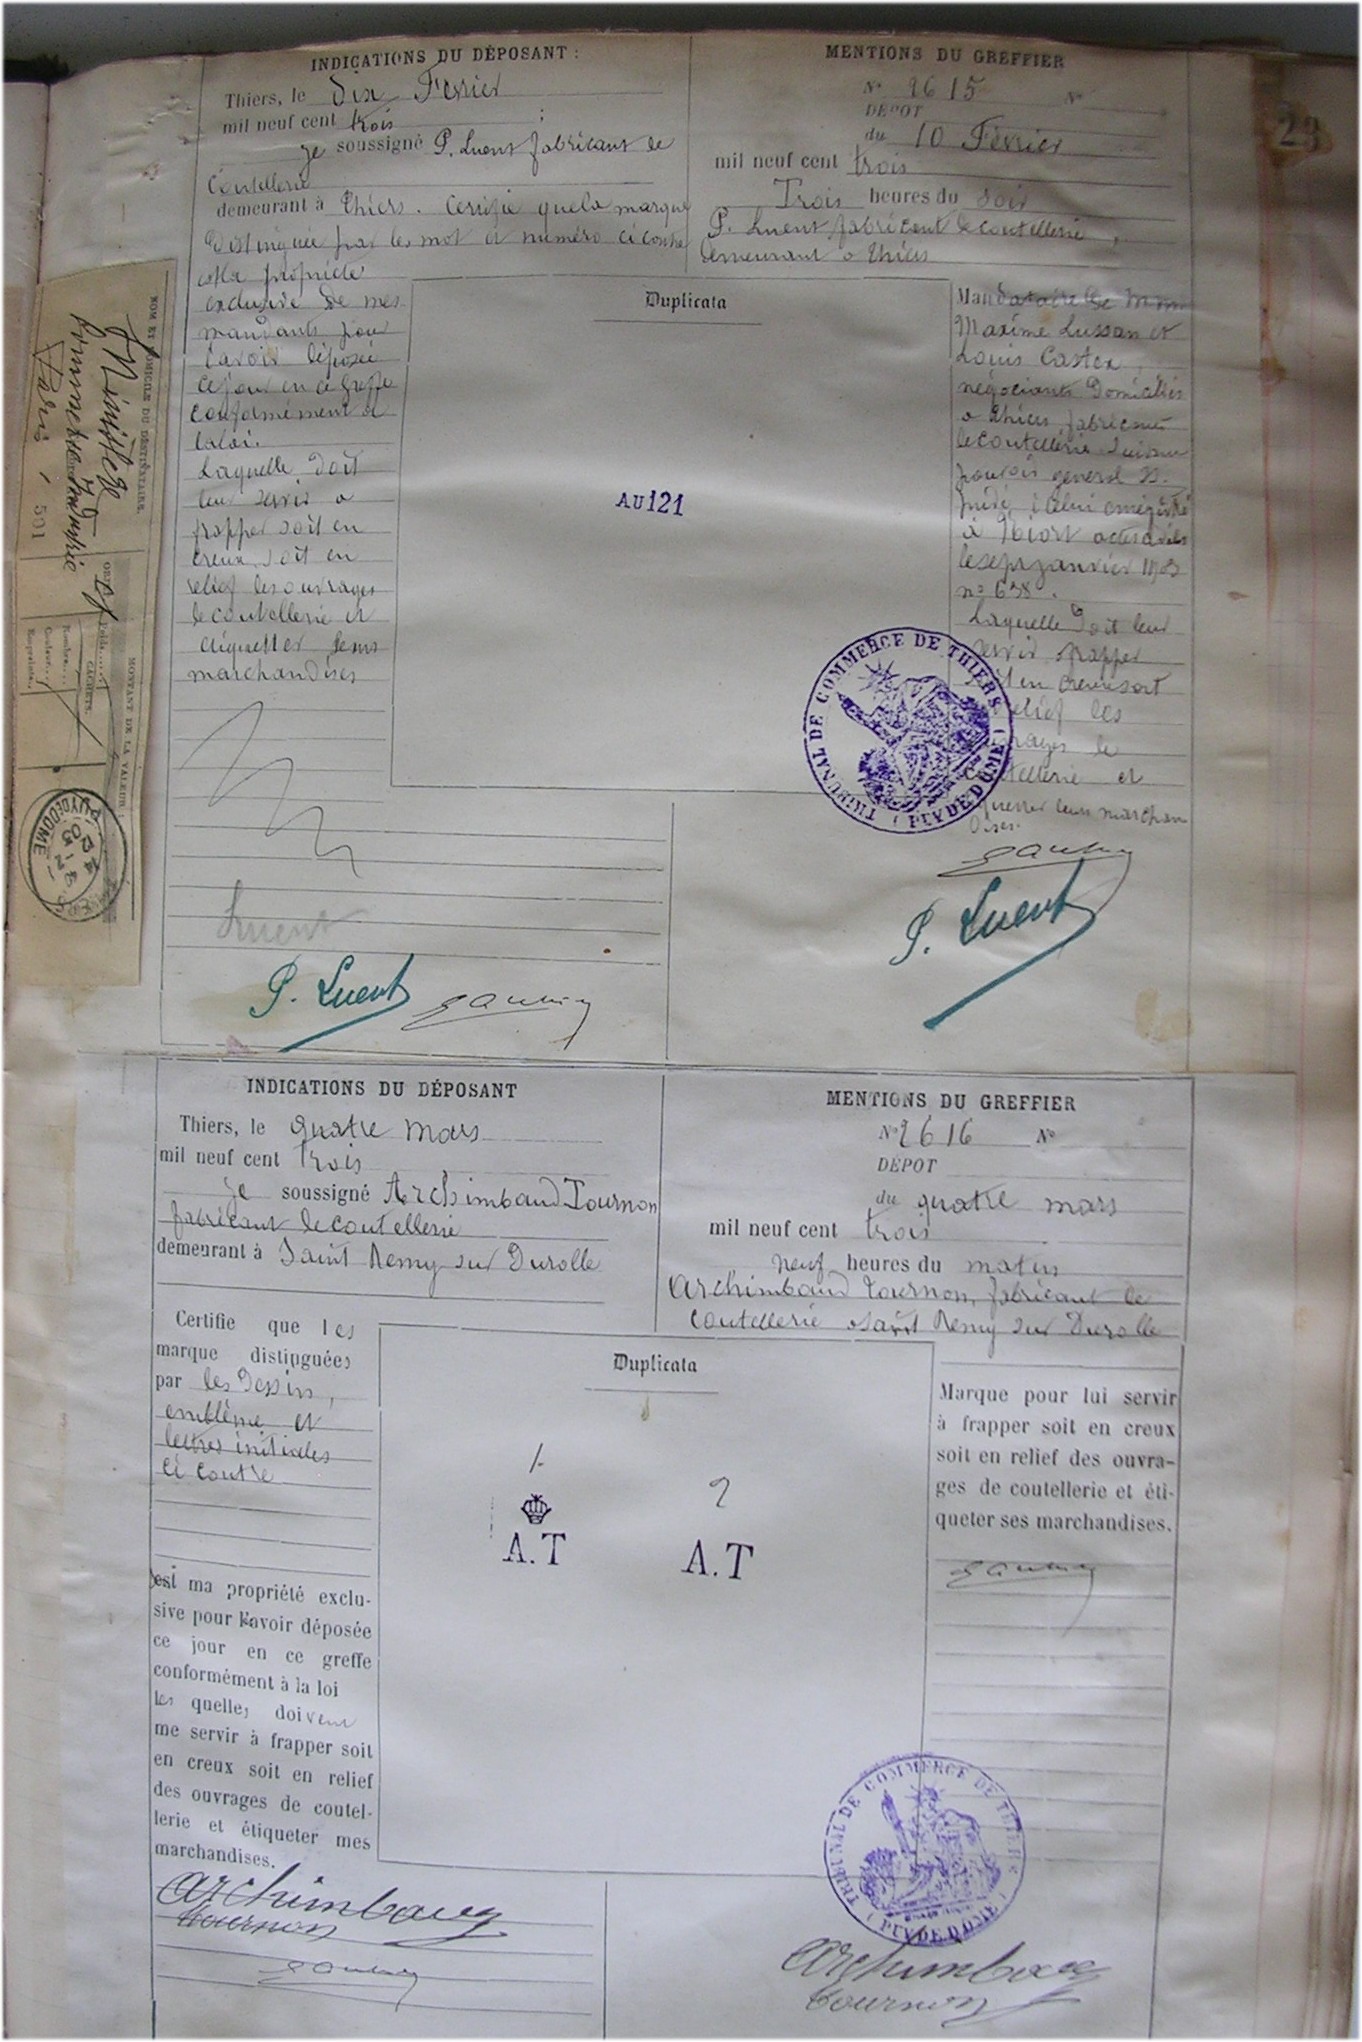 23
INDICATIONS DU DÉPOSANT :
Thiers, le dix Fevrier
mil neuf cent trois ;
je soussigné P. Luent fabricant de
Coutellerie
demeurant à Thiers. Certifie que la marque
Distinguée par les mot et numéro ci contre
est la propriété
exclusive de mes
mandants pour
l'avoir déposée
ce jour en ce greffe
conformément à
la loi.
Laquelle doit
leur servir a
frapper soit en
creux, soit en
relief les ouvrages
de coutellerie et
étiquetter leurs
marchandises
Luent
P. Luent
MENTIONS DU GREFFIER
N° 2615 N°
DÉPOT
du 10 Février
mil neuf cent trois
Trois heures du soir
P. Luent fabricant de coutellerie,
demeurant a Thiers
Mandataire de
Maxime Lussan et
Louis Castex,
négociants Domiciliés
a Thiers fabricants
de coutellerie suivant
pouvoir general
enregistré
à Niort actes civils
le sept janvier 1903
n° 638.
Laquelle doit leur
servir frapper
soit en creux soit
relief les
ouvrages de
coutellerie et
leurs marchan
dises.
P. Luent
Duplicata
AU121
TRIBUNAL DE COMMERCE DE THIERS
(PUY DE DOME)
NOM ET DOMICILE DU DESTINATAIRE.
Ministre
Commerce Industrie
Paris
501
Poids
CACHETS.
Nombre
Couleur
Empreinte
MONTANT DE LA VALEUR
PUY DE DOME
INDICATIONS DU DÉPOSANT
Thiers, le quatre mars
mil neuf cent trois
je soussigné Archimbaud Tournon
fabricant de coutellerie
demeurant à Saint Remy sur Durolle
Certifie que les
marque distinguées
par les dessins,
emblème et
lettres initiales
ci contre
est ma propriété exclu-
sive pour l'avoir déposée
ce jour en ce greffe
conformément à la loi
les quelles doivent
me servir à frapper soit
en creux soit en relief
des ouvrages de coutel-
lerie et étiqueter mes
marchandises.
Archimbaud
Tournon
MENTIONS DU GREFFIER
N° 2616 N°
DÉPOT
du quatre mars
mil neuf cent trois
neuf heures du matin
Archimbaud Tournon, fabricant de
coutellerie a Saint Remy sur Durolle
Duplicata
1
A.T
2
A.T
Marque pour lui servir
à frapper soit en creux
soit en relief des ouvra-
ges de coutellerie et éti-
queter ses marchandises.
TRIBUNAL DE COMMERCE DE THIERS
(PUY DE DOME)
Archimbaud
Tournon